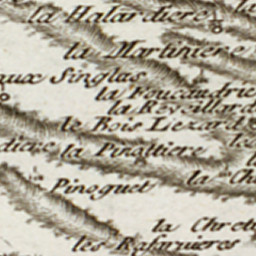 la Halardiere
la
la Martiniere
aux Singlas
la Foucaudrie
la Reveillard
le Bois Lezard
diere
la Pinottiere
la Ch
Pinoguet
la Chret
les Rafarvieres